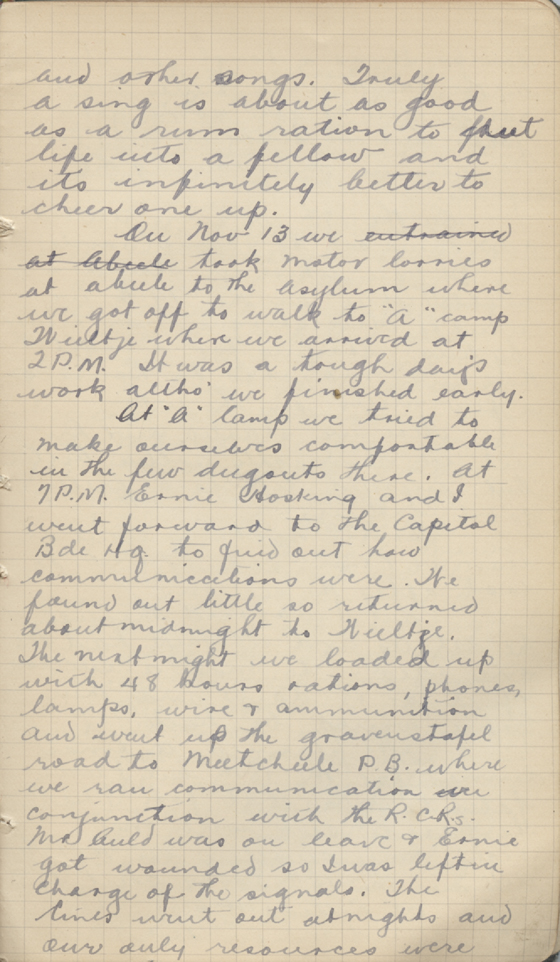 and other songs. Truly
a sing is about as good
as a rum ration to put
life into a fellow and
its infinitely better to
cheer one up.
On Nov 13 we entrained
at Abeele took motor lorries
at abeele to the asylum where
we got off to walk to "A" camp
Wieltje where we arrived at
2 P.M. It was a tough day's
work altho' we finished early.
At "A" Camp we tried to
make ourselves comfortable
in the few dugouts there. At
7 P.M. Ernie Hosking and I
went forward to the Capitol
Bde Hq. to find out how
communications were. We
found out little so returned
about midnight to Wieltje.
The next night we loaded up
with 48 hours rations, phones,
lamps, wire & ammunition
and went up the gravenstafel
road to Meetcheele P.B. where
we ran communication
conjunction with the R.C.Rs.
Mr Auld was on leave & Ernie
got wounded so I was left in
charge of the signals. The
lines went out at nights and
our only resources were